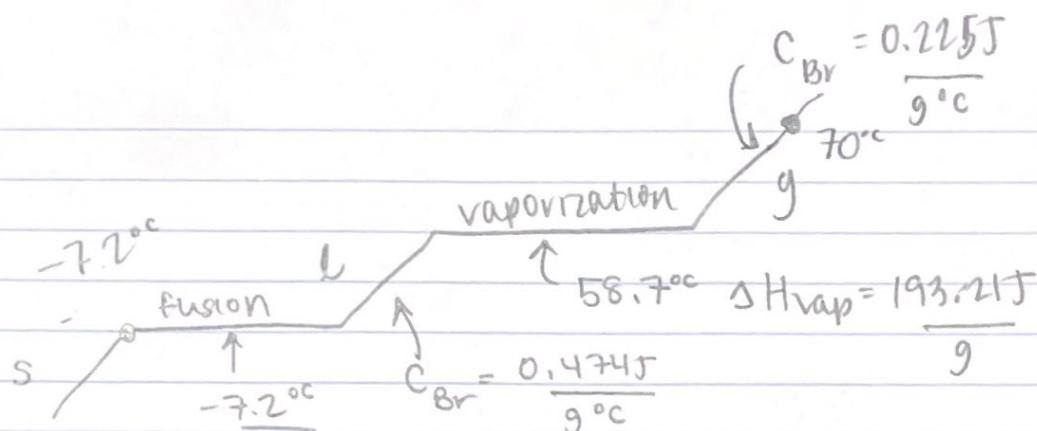 C Br = 0.225J
g°C
70°c
g
vaporization
-7.2°C
l
58.7°C ΔHvap = 193.21J
g
fusion
s
-7.2°C
C Br = 0.474J
g°C